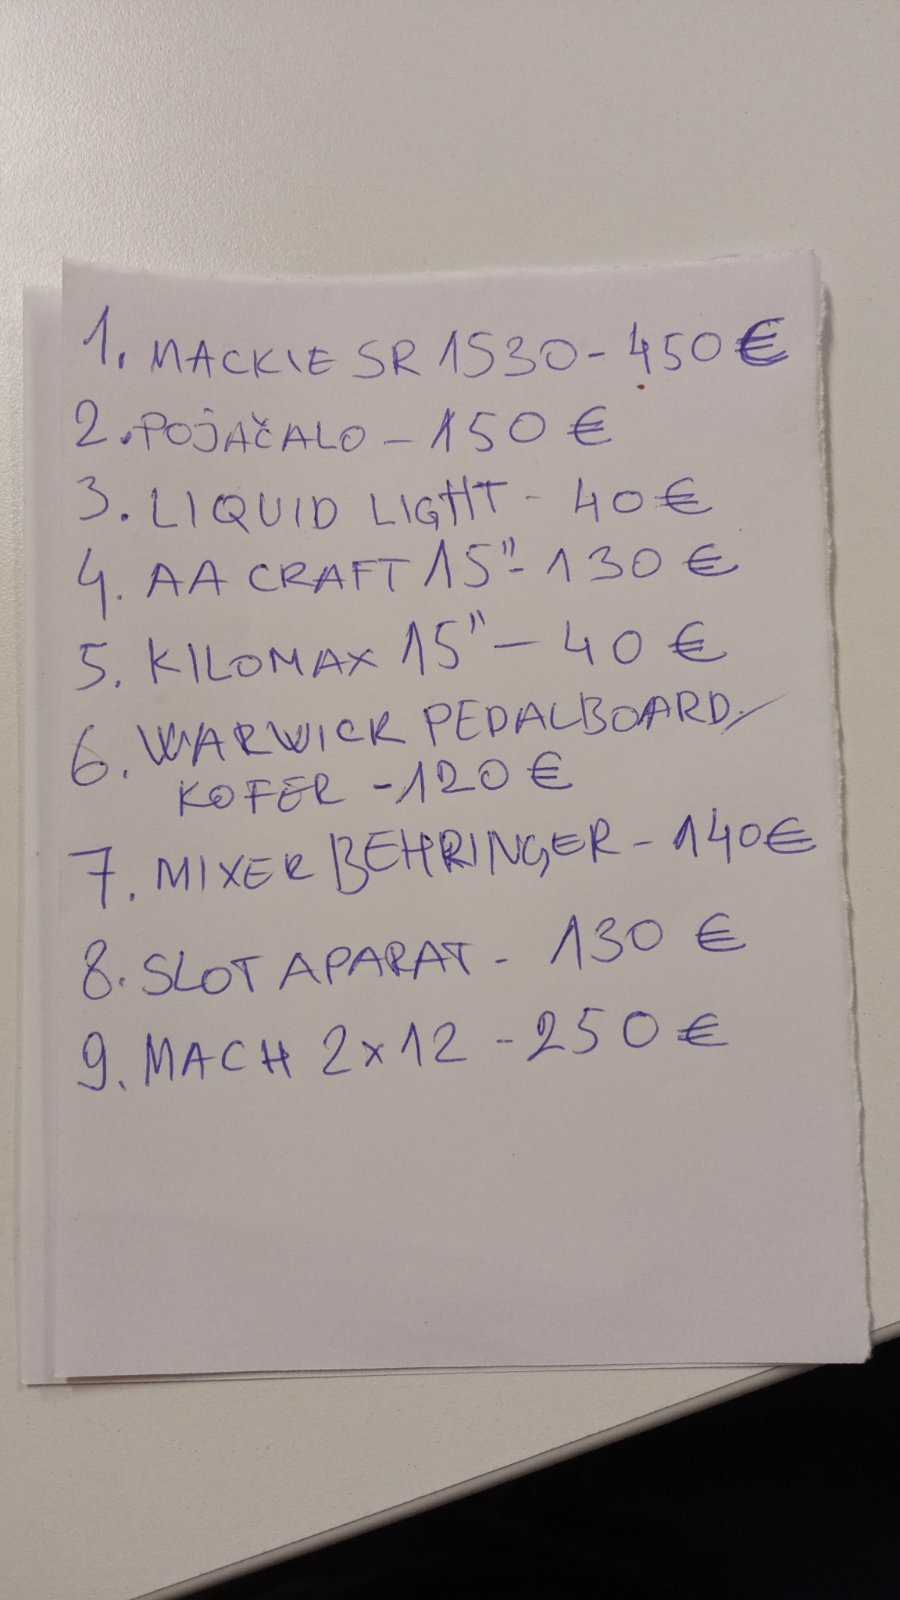 1. MACKIE SR 1530 - 450 €
2. POJAČALO - 150 €
3. LIQUID LIGHT - 40 €
4. AA CRAFT 15" - 130 €
5. KILOMAX 15" - 40 €
6. WARWICK PEDALBOARD/
KOFER - 120 €
7. MIXER BEHRINGER - 140 €
8. SLOT APARAT - 130 €
9. MACH 2x12 - 250 €